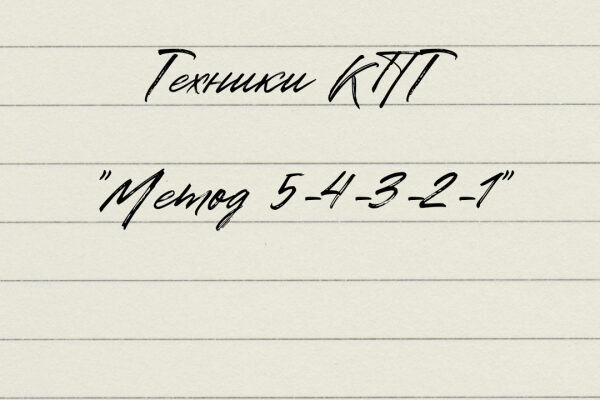 Техники КПТ
"Метод 5-4-3-2-1"